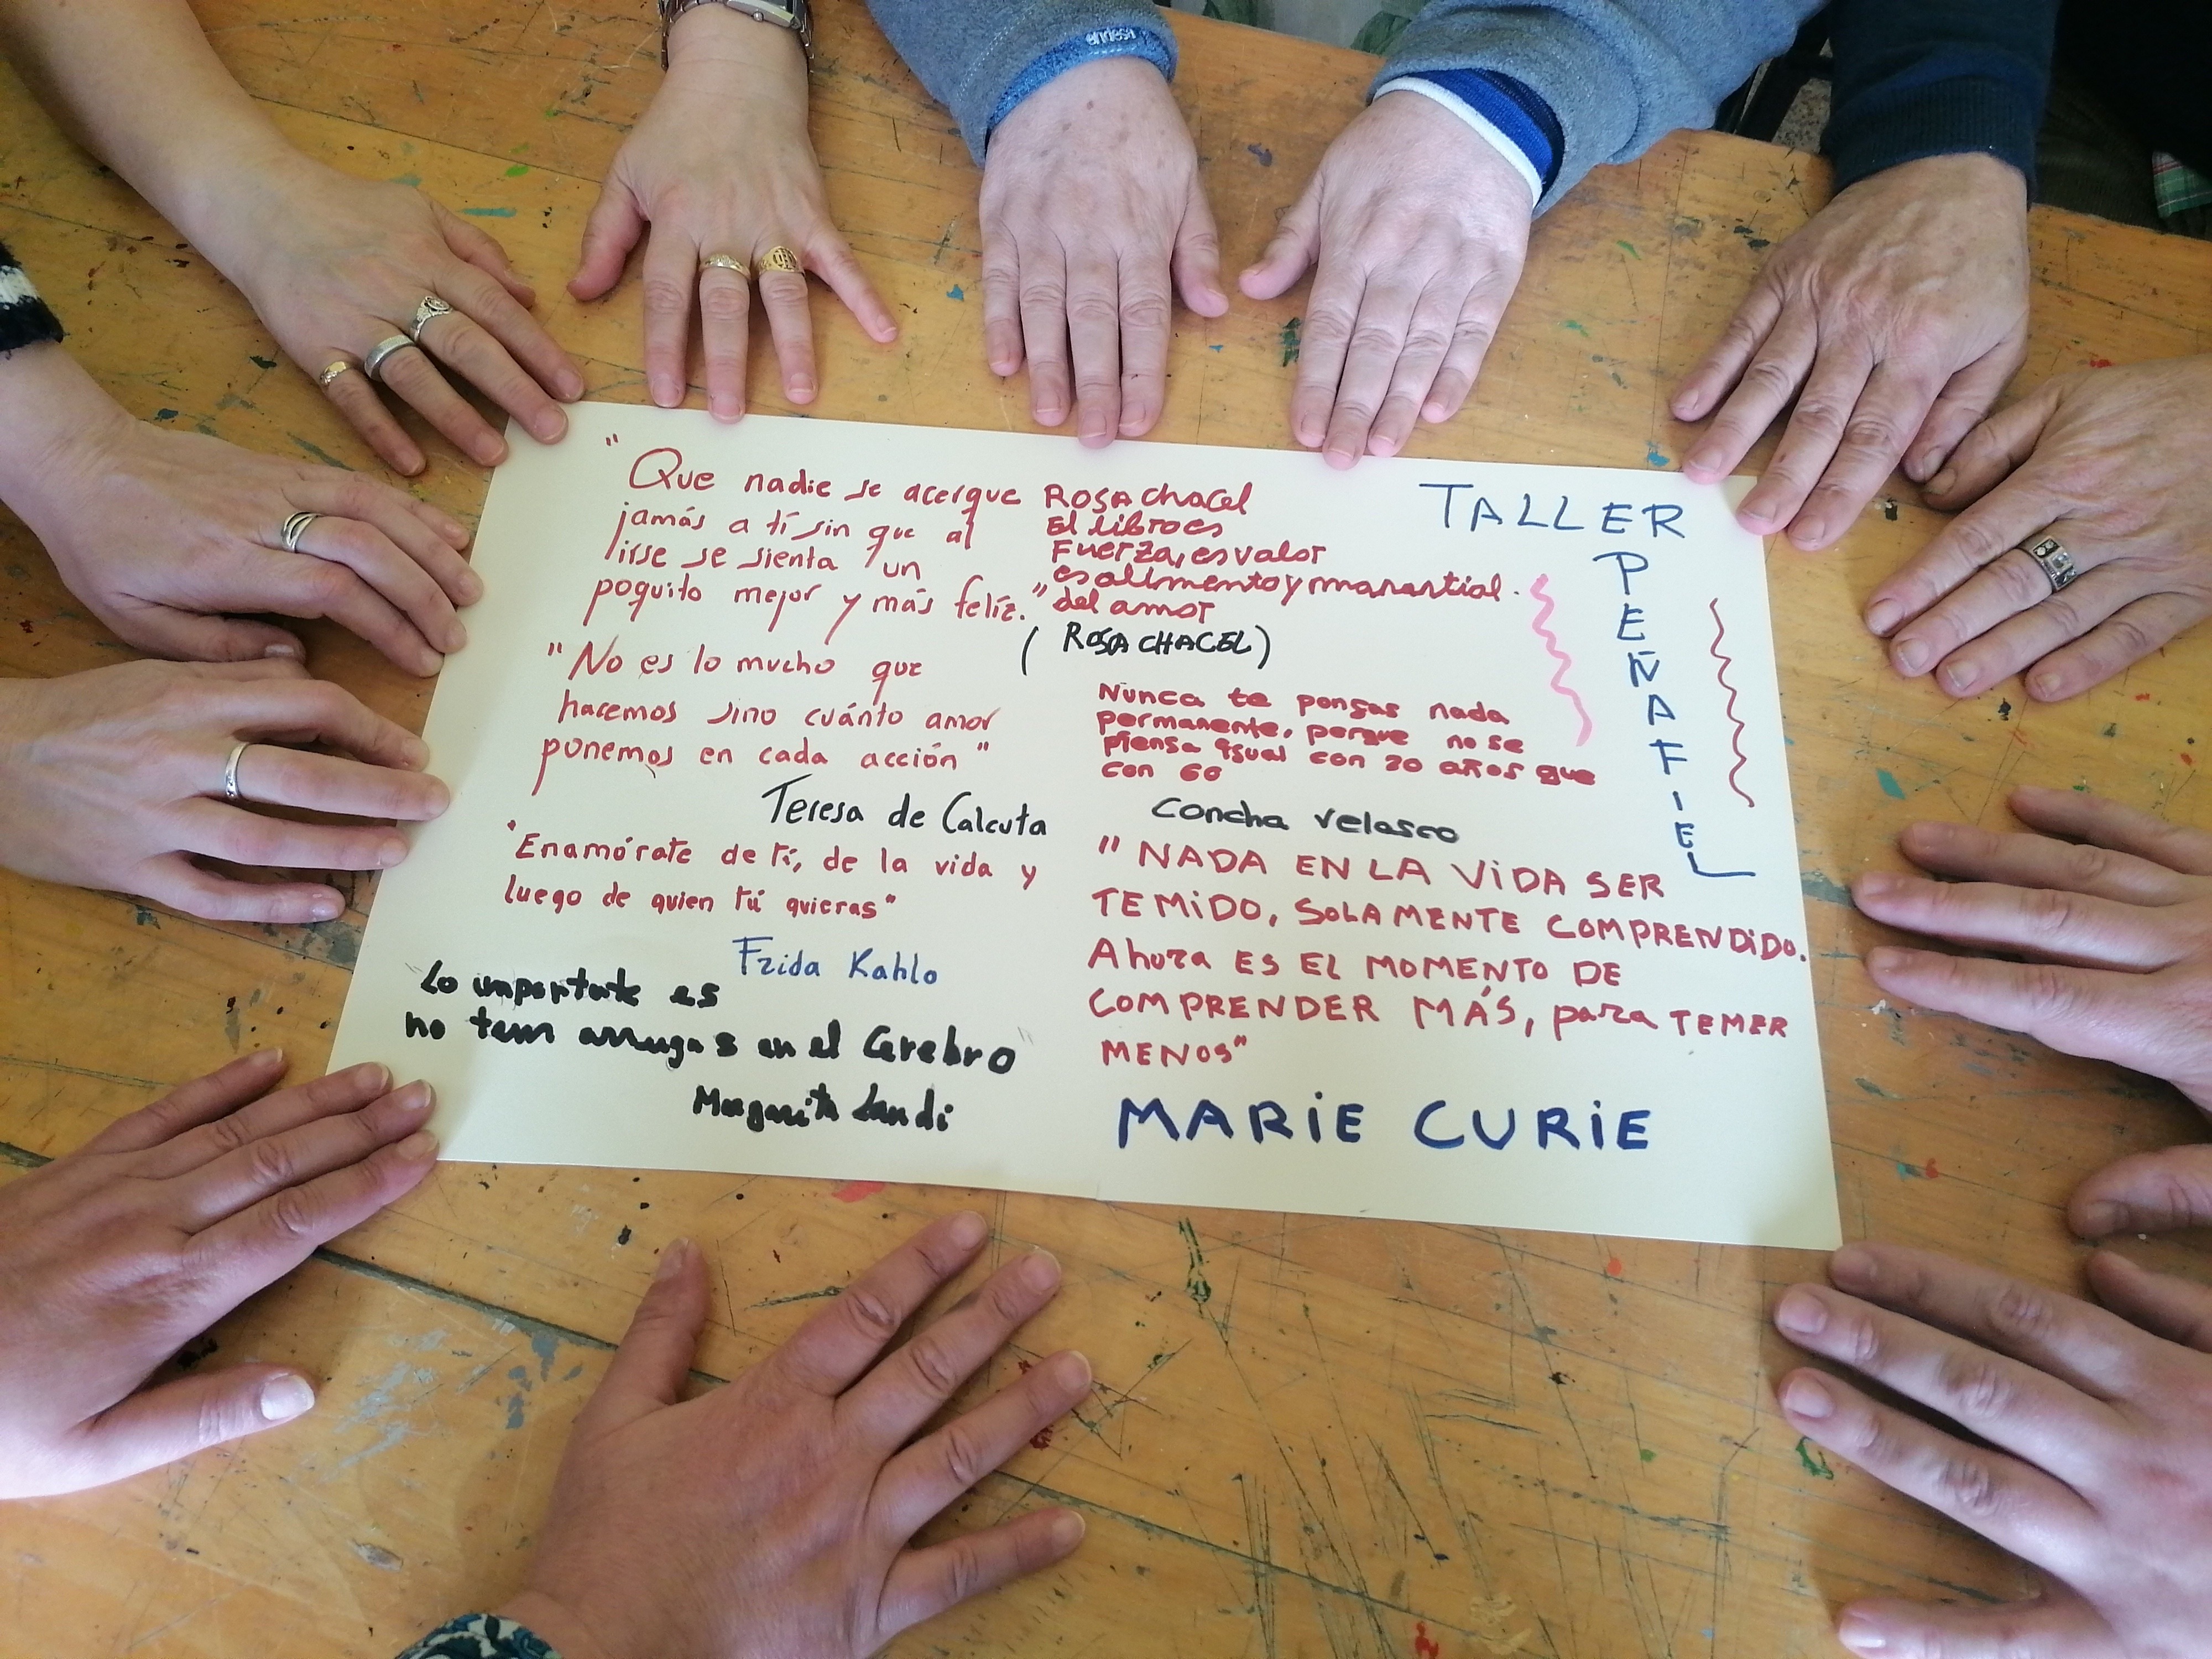 endesa
"Que nadie se acerque
jamás a tí sin que al
irse se sienta un
poquito mejor y más feliz."
"No es lo mucho que
hacemos sino cuánto amor
ponemos en cada acción"
Teresa de Calcuta
"Enamórate de tí, de la vida y
luego de quien tú quieras"
Frida Kahlo
"Lo importate es
no tener arrugas en el Cerebro"
Margarita Landi
ROSA Chacel
El libro es
Fuerza, es valor
es alimento y manantial.
del amor
(ROSA CHACEL)
Nunca te pongas nada
permanente, porque no se
piensa igual con 20 años que
con 60
Concha Velasco
"NADA EN LA ViDA SER
TEMiDO, SOLAMENTE COMPRENDiDO.
Ahora ES EL MOMENTO DE
COMPRENDER MÁS, para TEMER
MENOS"
MARiE CURiE
TALLER
PEÑAFIEL